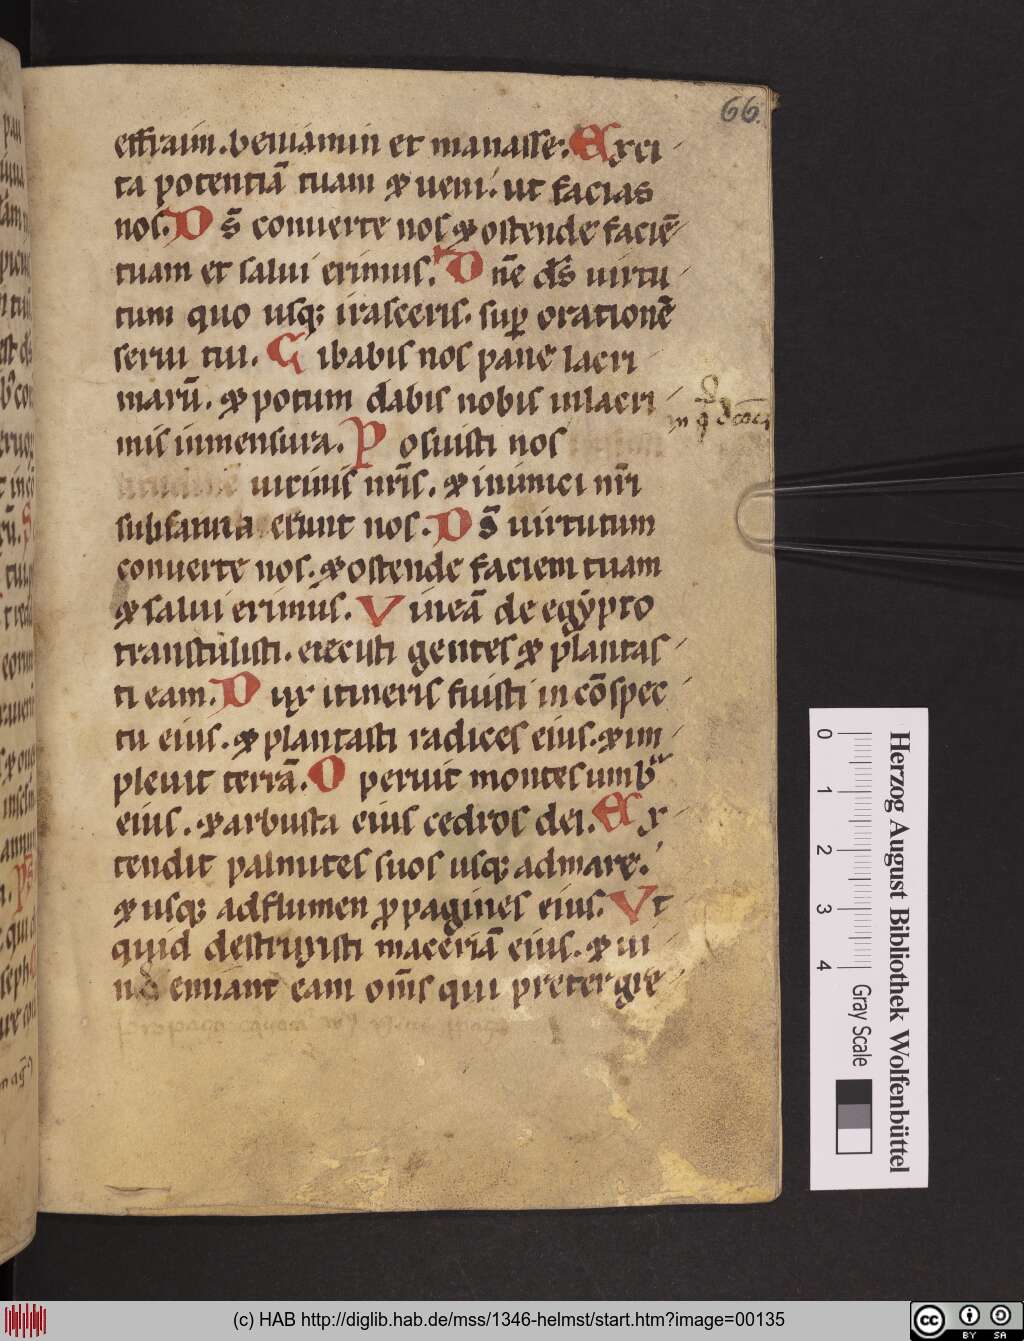 66.
effraim. beniamin et manasse. Exci
ta potentiā tuam ⁊ ueni. ut facias
nos. Ds̄ conuerte nos ⁊ ostende faciē
tuam et salui erimus. Dne ds̄ uirtu
tum quo usq; irasceris. sup orationē
serui tui. Cibabis nos pane lacri
marū. ⁊ potum dabis nobis inlacri
mis inmensura. Posuisti nos
uicinis nr̄is. ⁊ inimici nr̄i
subsannauerunt nos. Ds̄ uirtutum
conuerte nos. ⁊ ostende faciem tuam
⁊ salui erimus. Vineā de egypto
transtulisti. eiecisti gentes ⁊ plantas
ti eam. Dux itineris fuisti in cōspec
tu eius. ⁊ plantasti radices eius. ⁊ im
pleuit terrā. Operuit montes umb
eius. ⁊ arbusta eius cedros dei. Ex
tendit palmites suos usq; admare.
⁊ usq; adflumen ꝓpagines eius. Vt
quid destruxisti maceriā eius. ⁊ ui
eam om̄s qui pretergre
Herzog August Bibliothek Wolfenbüttel
0 1 2 3 4 Gray Scale
(c) HAB http://diglib.hab.de/mss/1346-helmst/start.htm?image=00135
cc BY SA